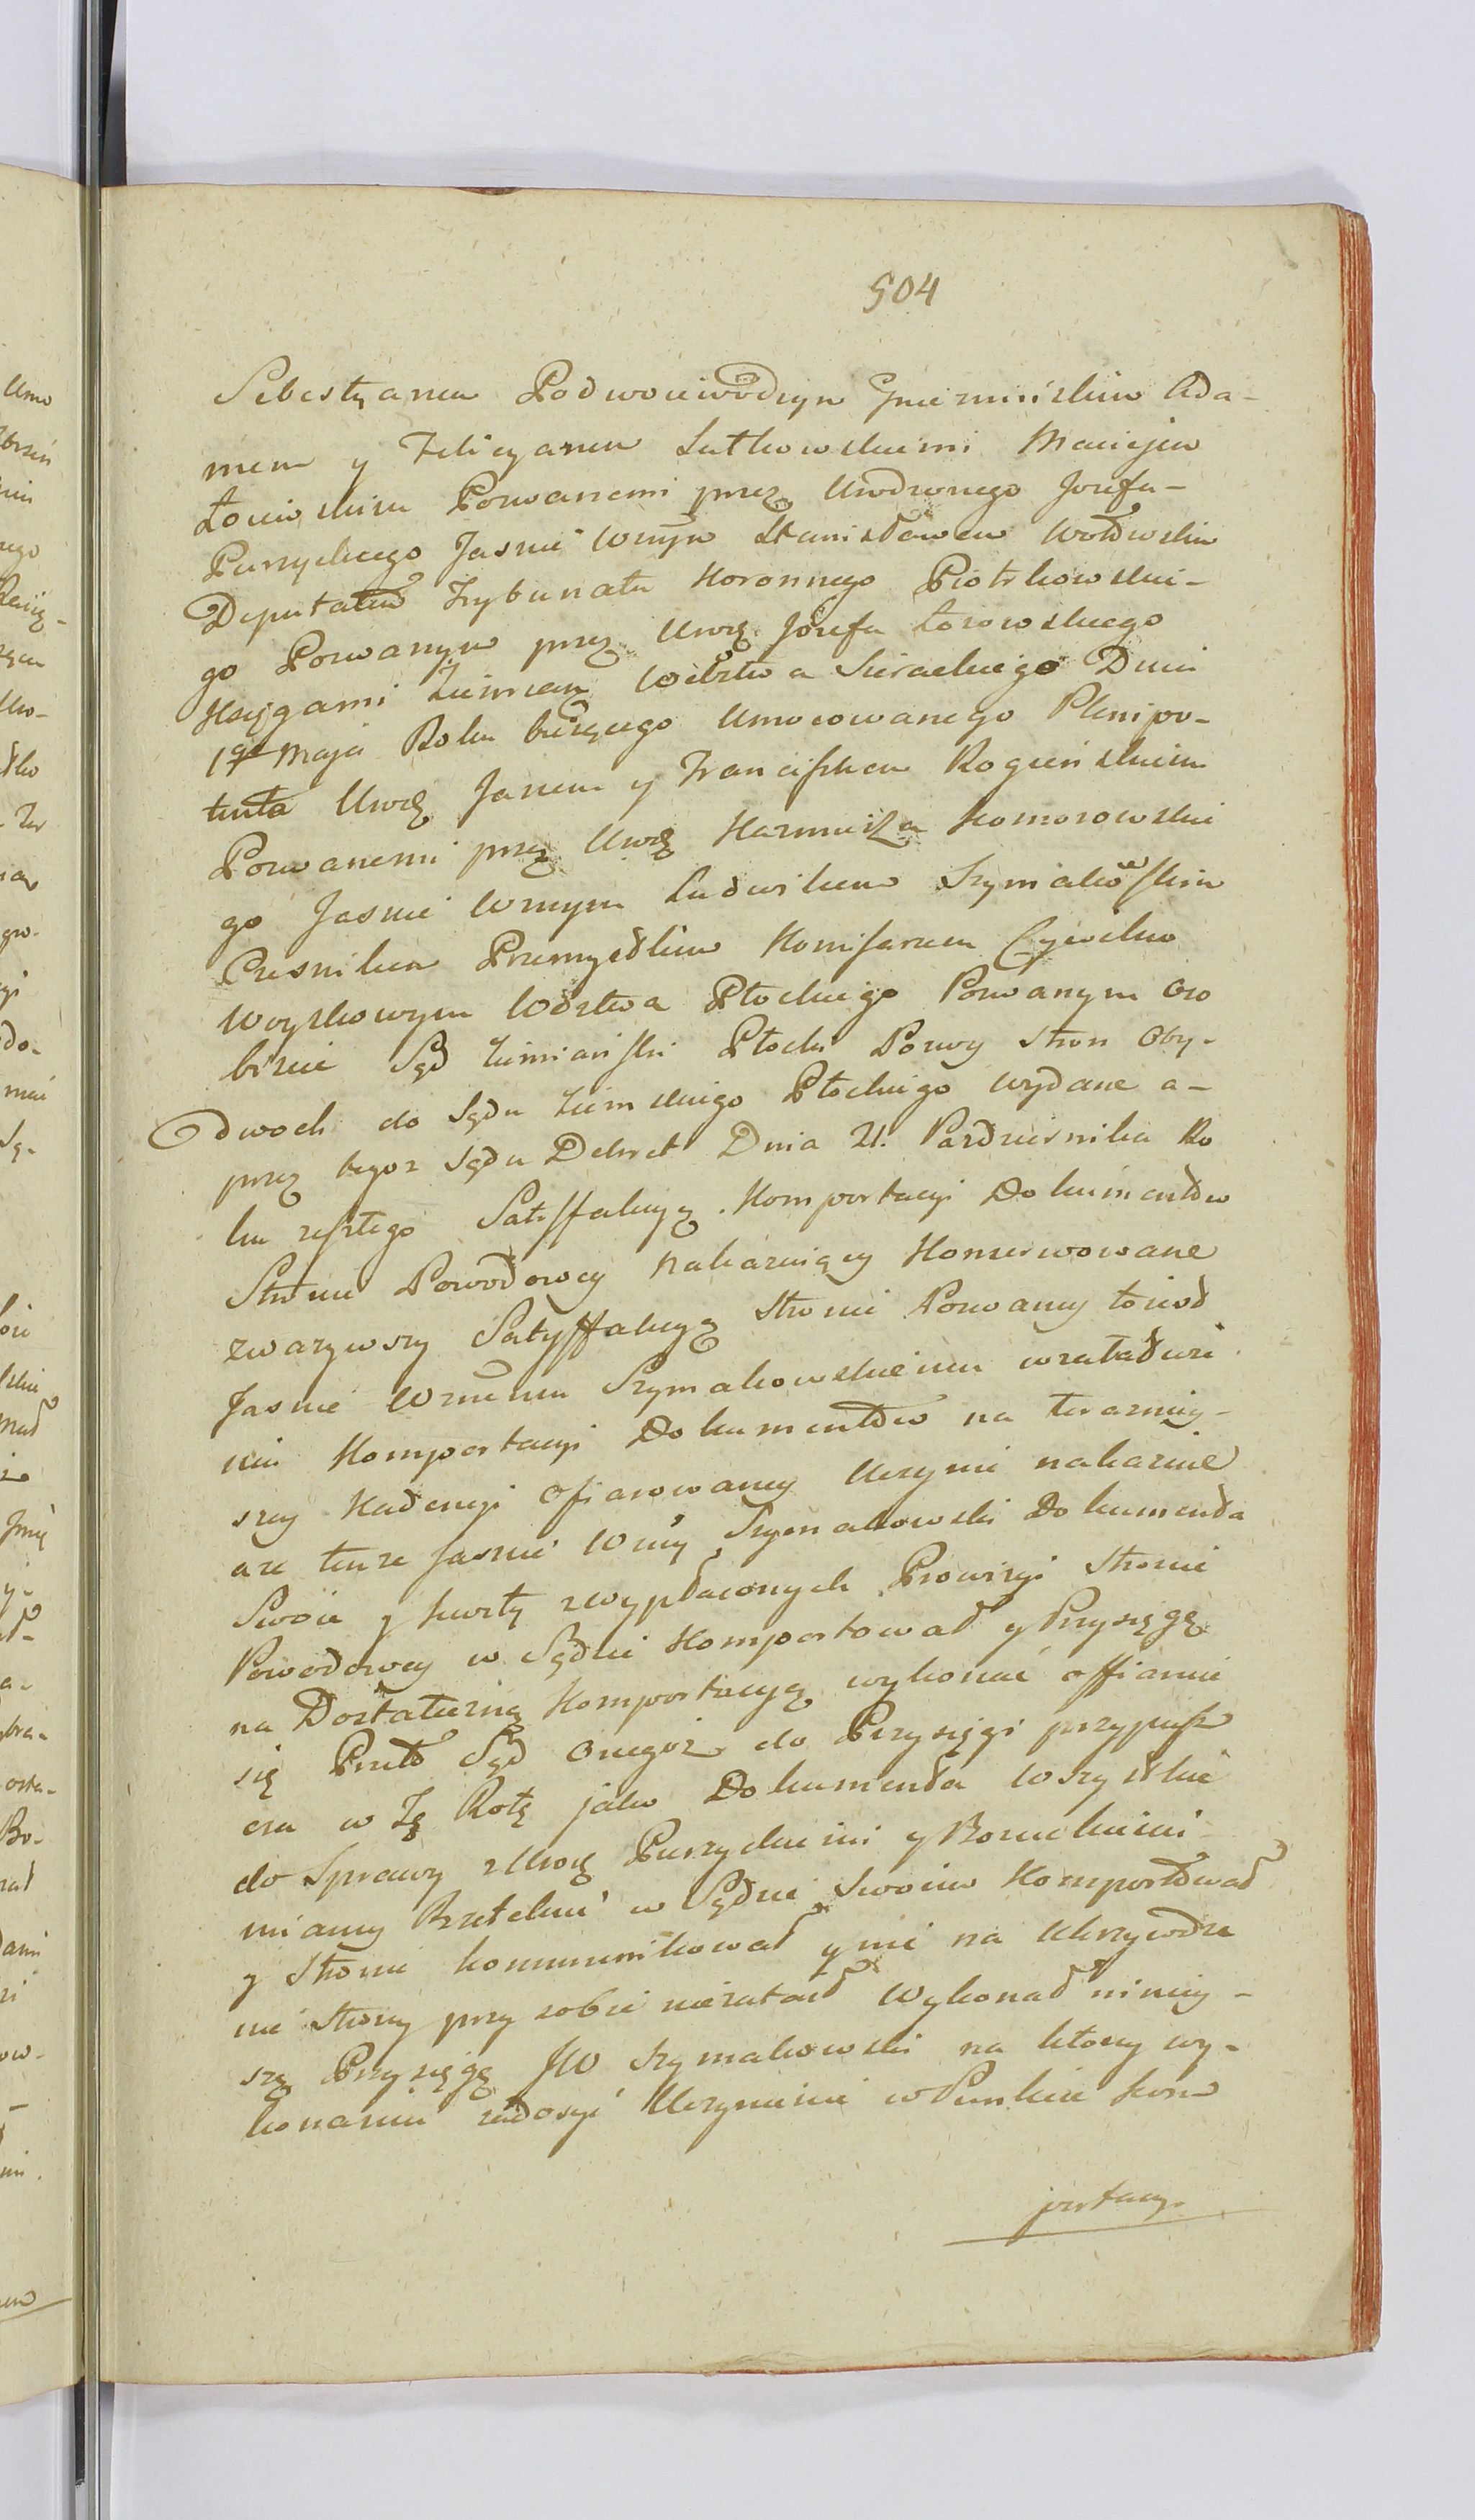 504
Sebestyanem Podwoiewodzym Gnieznińskim Ada-
mem y Felicyanem Lutkowskiemi Maciejem
Łoiewskim Pozwanemi przez Urodzonego Jozefa
Purzyckiego Jasnie Wnym Stanisławem
Deputatem Trybunału Koronnego Piotrkowskie-
go Pozwanym przez Urog Józefa
Xięgami Ziemian Wdztwa Sieradzkiego Dnia
19 Maja Roku bieżącego Umocowanego Plenipo-
tenta Urog Janem y Franciszkem Rogienskim
Pozwanemi przez Urog Kazmierza Komorowskie
go Jasnie Wnym Ludwikem Szymakowskim
Czesnikem Przemyslkim Komisarzem Cywilno
Woyskowym Wdztwa Płockiego Pozwanym Oso
biscie Sąd Ziemiański Płocki Pozwy stron Oby-
dwoch do Sądu Ziemskiego Płockiego wydane a-
przez tegoz Sądu Dekret Dnia 21. Pazdziernika Ro
ku zeszłego Satysfakcyą Komportacyi Dokumentow
Stronie Powodowey Nakazuiący Konserwowane
zwazywszy Satysfakcyą stronie Pozwaney to iest
Jasnie Wnemu Szymakowskiemu wzaładwie
niu Komportacyi Dokumentow na teraznięy-
szey Kadencyi ofiarowaney Uczynić nakazuie
aze tenze Jasnie Wny Szymakowski Dokumenta
Swoie y kwity zwypłaconych Prowizyi Stronie
Powodowey w Sądzie Komportował y Przysięgę
na Dostateczną Komportacyą wykonać offiaruie
się Przeto Sąd Onegoz do Przysięgi przypusz
cza w Tę Rotę jako Dokumenta wszystkie
do Sprawy z Urog Purzyckiemi y
miany Rzetelnie w Sądzie Swoim Komportował
y Stronie kommunikował y nic na Ukrzywdze
nie Strony przy sobie niezataił Wykonał niniey-
szą Przysięgę JW Szymakowski na ktorey wy-
konaniu zadosyć Uczynienie w Punkcie kom
portacy.